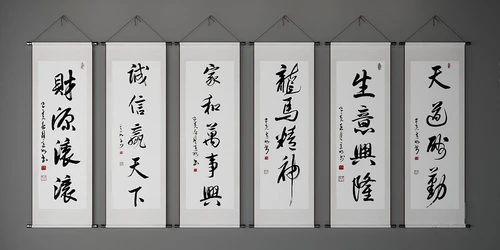 財源滾滾
誠信贏天下
家和萬事興
龍馬精神
生意興隆
天道酬勤